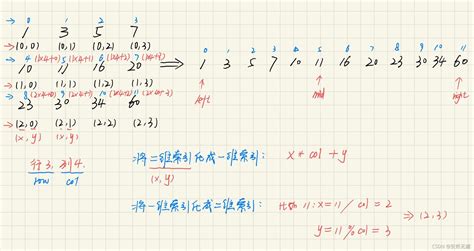 0 1 2 3
1 3 5 7
→(0,0) (0,1) (0,2) (0,3)
4 (1x4+0) 5 (1x4+1) 6 (1x4+2) 7 (1x4+3)
10 11 16 20
→(1,0) (1,1) (1,2) (1,3)
8 (2x4+0) 9 (2x4+1) 10 (2x4+2) 11 (2x4+3)
23 30 34 60
→(2,0) (2,1) (2,2) (2,3)
(x,y) (x,y)
行3, 列4.
row col
0 1 2 3 4 5 6 7 8 9 10 11
⇒ 1 3 5 7 10 11 16 20 23 30 34 60
left mid right
⇒将二维索引化成一维索引: x * col + y
(x,y)
⇒将一维索引化成二维索引: 比如 11: x = 11 / col = 2
y = 11 % col = 3
⇒ (2,3)